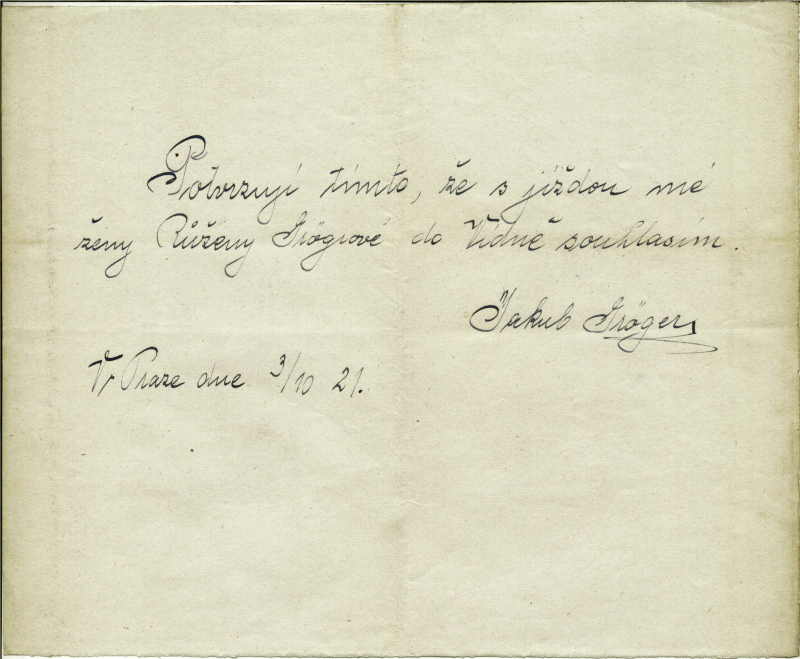 Potvrzuji tímto, že s jízdou mé
ženy Růženy Grögrové do Vídně souhlasím.
Jakub Gröger
V Praze dne 3/10 21.